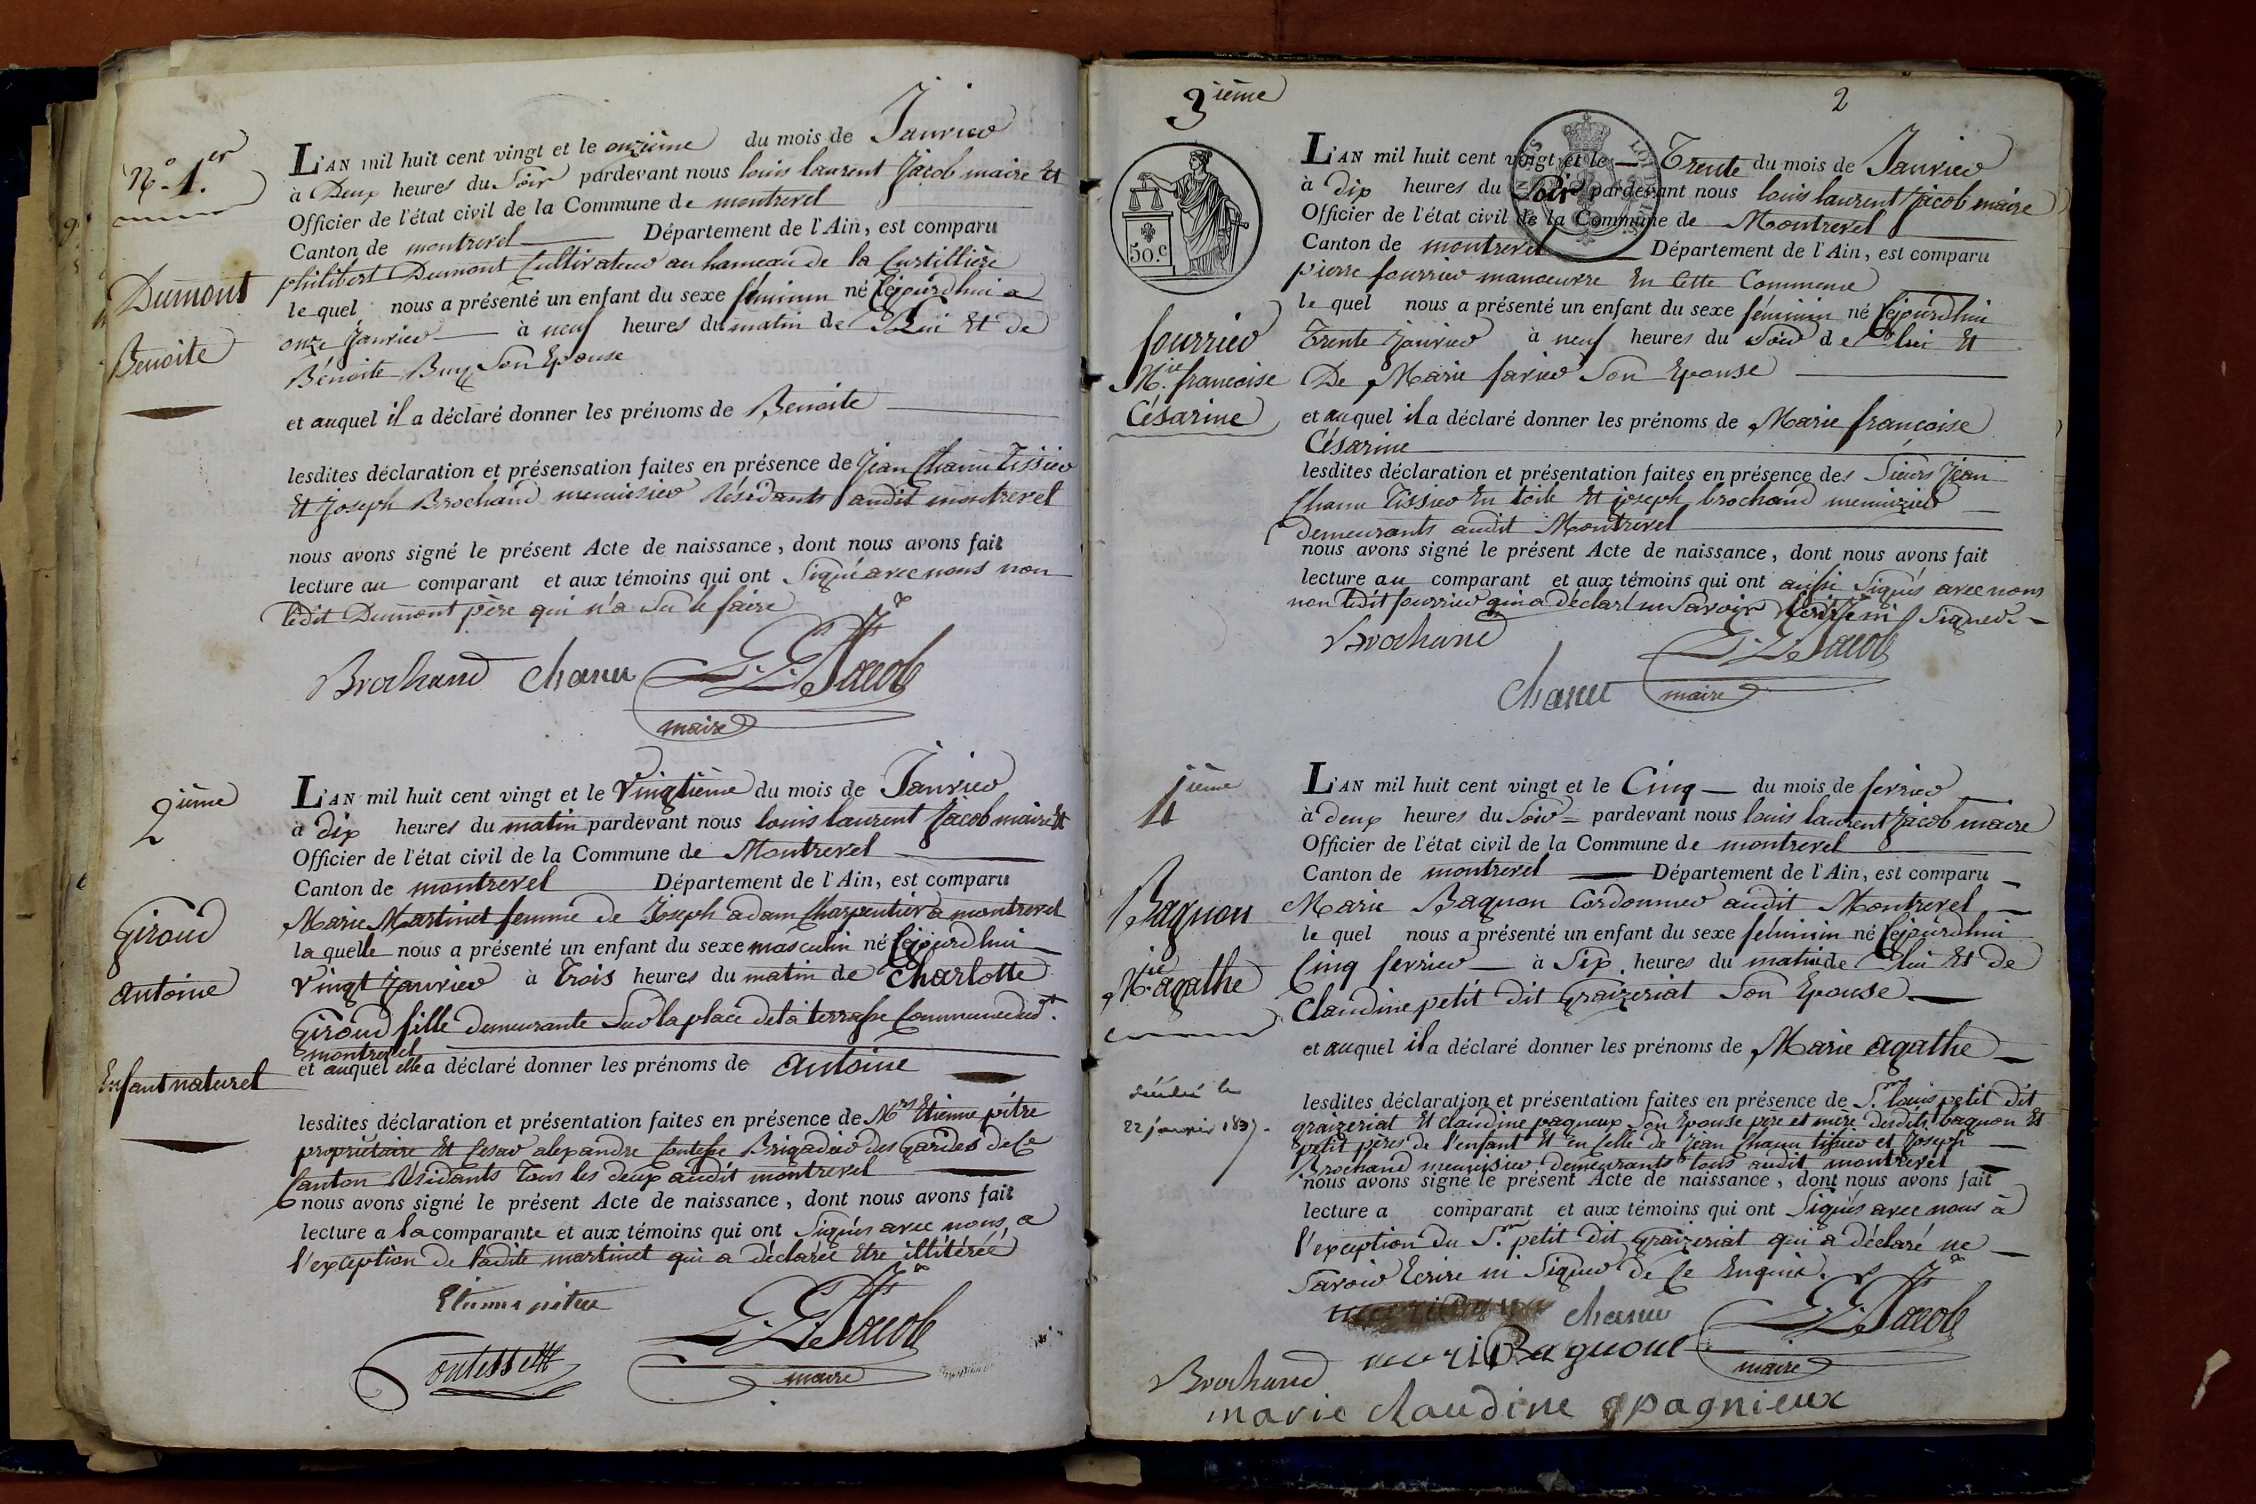 N.o 1.er
Dumont
Benoite
L'AN mil huit cent vingt et le onzième du mois de Janvier
à Deux heures du Soir pardevant nous louis laurent Jacob maire Et
Officier de l'état civil de la Commune de montrevel
Canton de montrevel Département de l'Ain, est comparu
philibert Dumont Cultivateur au hameau de la Curtillière
le quel nous a présenté un enfant du sexe féminin né Cejourdhui
onze Janvier à neuf heures du matin de Lui Et de
Bénoite Buy Son Epouse
et auquel il a déclaré donner les prénoms de Benoite
lesdites déclaration et présensation faites en présence de Jean Chanu Tissier
Et Joseph Brochand menuisier Résidants audit montrevel
nous avons signé le présent Acte de naissance, dont nous avons fait
lecture au comparant et aux témoins qui ont Signé avec nous non
ledit Dumont père qui n'a Su le faire
Brochand chanu L. L. Jacob
maire
2ième
Giroud
antoine
Enfant naturel
L'AN mil huit cent vingt et le Vingtième du mois de Janvier
à dix heures du matin pardevant nous louis laurent Jacob maire Et
Officier de l'état civil de la Commune de Montrevel
Canton de montrevel Département de l'Ain, est comparu
Marie Martinet femme de Joseph adam Charpentier à montrevel
la quelle nous a présenté un enfant du sexe masculin né Cejourdhui
Vingt Janvier à Trois heures du matin de Charlotte
Giroud fille demeurante Sur la place de la terrasse Commune dud.t
montrevel
et auquel elle a déclaré donner les prénoms de antoine
lesdites déclaration et présentation faites en présence de M.rs Etienne pitre
propriétaire Et Cesar alexandre Contesse Brigadier des Gardes de Ce
Canton Résidants Tous les deux audit montrevel
nous avons signé le présent Acte de naissance, dont nous avons fait
lecture a la comparante et aux témoins qui ont Signés avec nous, a
l'exception de ladite martinet qui a déclarée Etre illitérée
Etienne pitre
L. L. Jacob
maire
3ième
2
50.c
fourrier
M.ie francoise
Césarine
L'AN mil huit cent vingt et le Trente du mois de Janvier
à dix heures du Soir pardevant nous louis laurent Jacob maire
Officier de l'état civil de la Commune de Montrevel
Canton de montrevel Département de l'Ain, est comparu
pierre fourrier manoeuvre En Cette Commune
le quel nous a présenté un enfant du sexe féminin né Cejourdhui
Trente Janvier à neuf heures du Soir de lui Et
De Marie farier Son Epouse
et auquel il a déclaré donner les prénoms de Marie françoise
Césarine
lesdites déclaration et présentation faites en présence des Sieurs Jean
Chanu Tissier En toile Et joseph brochand menuizier
demeurants audit Montrevel
nous avons signé le présent Acte de naissance, dont nous avons fait
lecture au comparant et aux témoins qui ont aussi Signés avec nous
non ledit fourrier qui a déclaré ne Savoir Ecrire ni Signer
Brochand
chanu L. L. Jacob
maire
4ième
Bagnon
M.ie agathe
décédé le
22 janvier 1837.
L'AN mil huit cent vingt et le Cinq du mois de fevrier
à deux heures du Soir pardevant nous louis laurent Jacob maire
Officier de l'état civil de la Commune de montrevel
Canton de montrevel Département de l'Ain, est comparu
Marie Bagnon Cordonnier audit Montrevel
le quel nous a présenté un enfant du sexe feminin né Cejourdhui
Cinq fevrier à Six heures du matin de lui Et de
Claudine petit dit Graizeriat Son Epouse
et auquel il a déclaré donner les prénoms de Marie agathe
lesdites déclaration et présentation faites en présence de S.r louis petit dit
graizeriat Et claudine pagneux Son Epouse père et mère desdits bagnon Et
petit pères de l'enfant Et en Celle de Jean Chanu tissier et Joseph
Brochand menuisier demeurants tous audit montrevel
nous avons signé le présent Acte de naissance, dont nous avons fait
lecture a comparant et aux témoins qui ont Signés avec nous à
l'exception du S.r petit dit graizeriat qui a déclaré ne
Savoir Ecrire ni Signer de Ce Enquis.
chanu L. L. Jacob
mari Bagnon maire
Brochand
marie claudine pagnieux